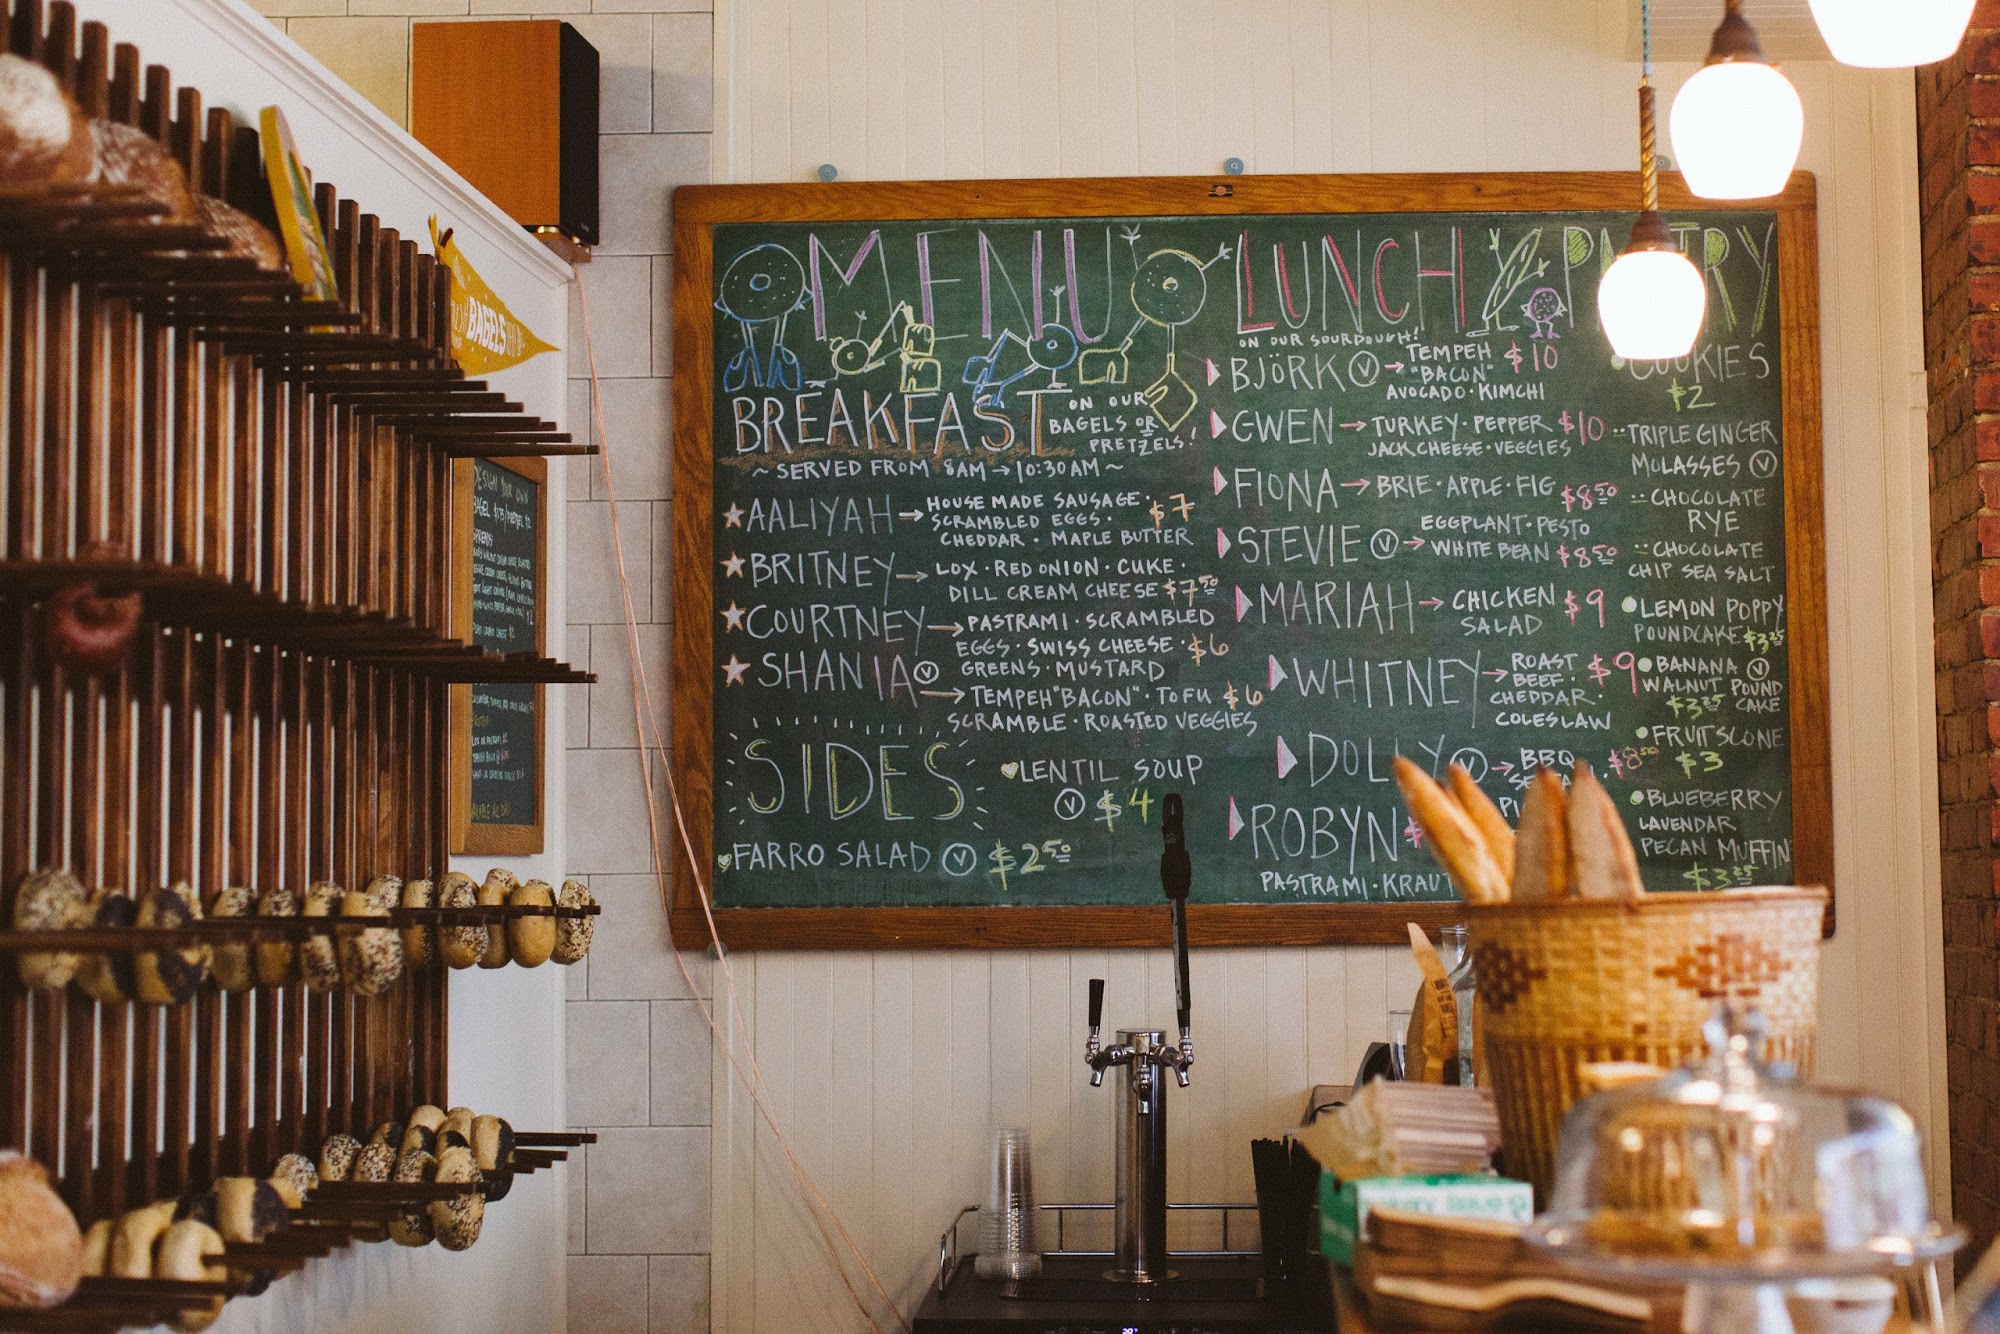 MENU
BREAKFAST
ON OUR
BAGELS OR
PRETZELS!
~ SERVED FROM 8AM → 10:30AM ~
AALIYAH → HOUSE MADE SAUSAGE · $7
SCRAMBLED EGGS ·
CHEDDAR · MAPLE BUTTER
BRITNEY → LOX · RED ONION · CUKE ·
DILL CREAM CHEESE $7.50
COURTNEY → PASTRAMI · SCRAMBLED
EGGS · SWISS CHEESE · $6
GREENS · MUSTARD
SHANIA Ⓥ → TEMPEH "BACON" · TOFU $6
SCRAMBLE · ROASTED VEGGIES
SIDES
LENTIL SOUP
Ⓥ $4
FARRO SALAD Ⓥ $2.50
LUNCH
ON OUR SOURDOUGH!
BJÖRK Ⓥ → TEMPEH $10
"BACON"
AVOCADO · KIMCHI
GWEN → TURKEY · PEPPER $10
JACK CHEESE · VEGGIES
FIONA → BRIE · APPLE · FIG $8.50
STEVIE Ⓥ → EGGPLANT · PESTO
WHITE BEAN $8.50
MARIAH → CHICKEN $9
SALAD
WHITNEY → ROAST $9
BEEF ·
CHEDDAR ·
COLESLAW
DOLLY Ⓥ → BBQ $8.50
ROBYN
PASTRAMI · KRAUT
PASTRY
COOKIES
$2
TRIPLE GINGER
MOLASSES Ⓥ
CHOCOLATE
RYE
CHOCOLATE
CHIP SEA SALT
LEMON POPPY
POUNDCAKE $3.25
BANANA Ⓥ
WALNUT POUND
$3.25 CAKE
FRUIT SCONE
$3
BLUEBERRY
LAVENDAR
PECAN MUFFIN
$3.25
BAGELS
DESIGN YOUR OWN
SPREADS